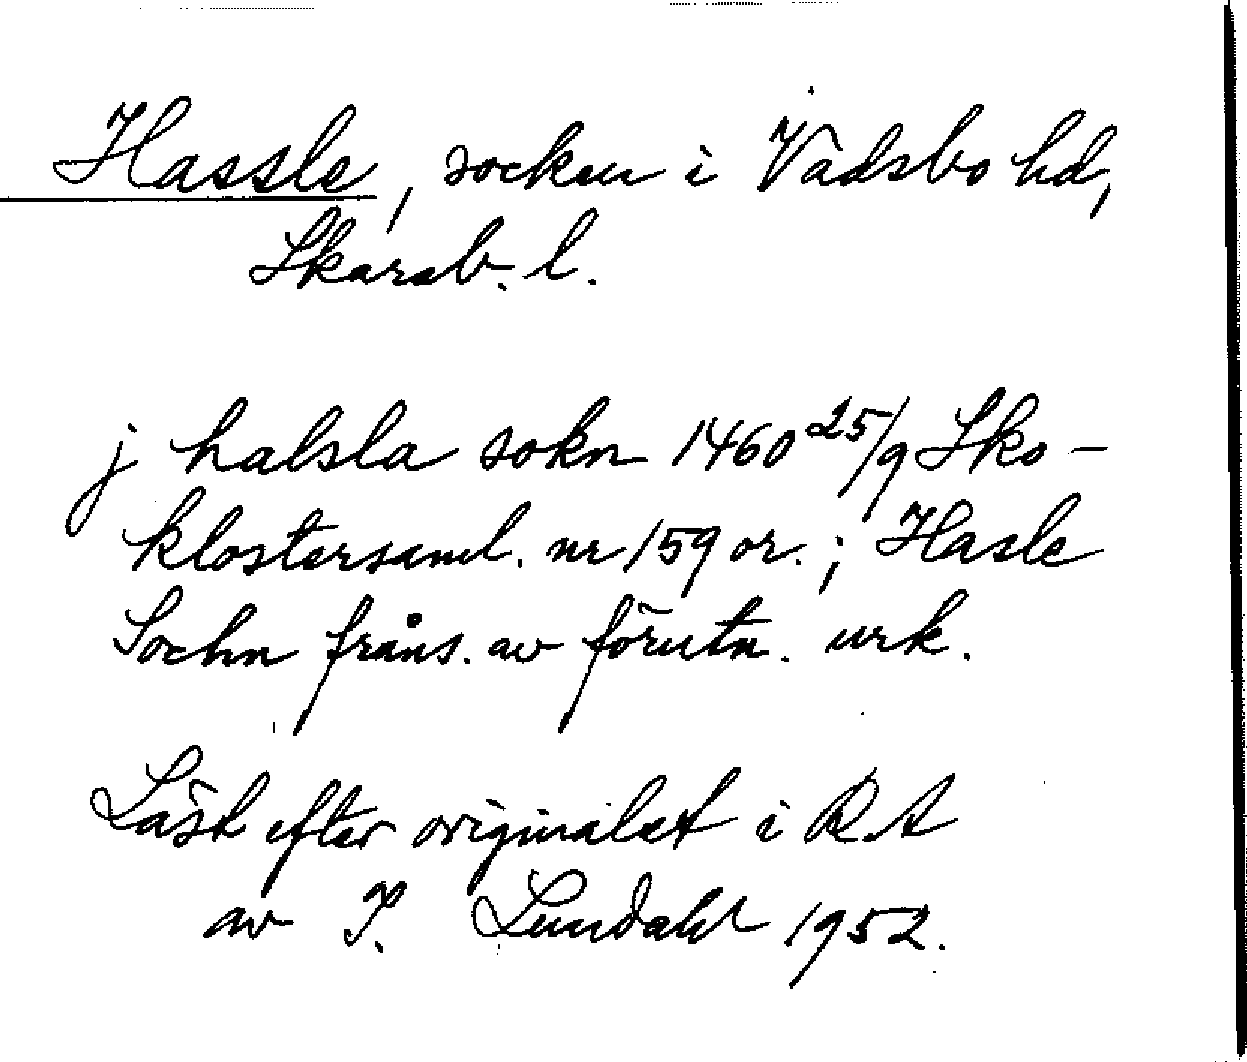 Hassle, socken i Vadsbo hd,
Skarab. l.
j halsla sokn 1460 25/9 Sko-
klostersaml. nr 159 or.; Hasle
Sochn fråns. av förutn. urk.
Läst efter originalet i RA
av I. Lundahl 1952.